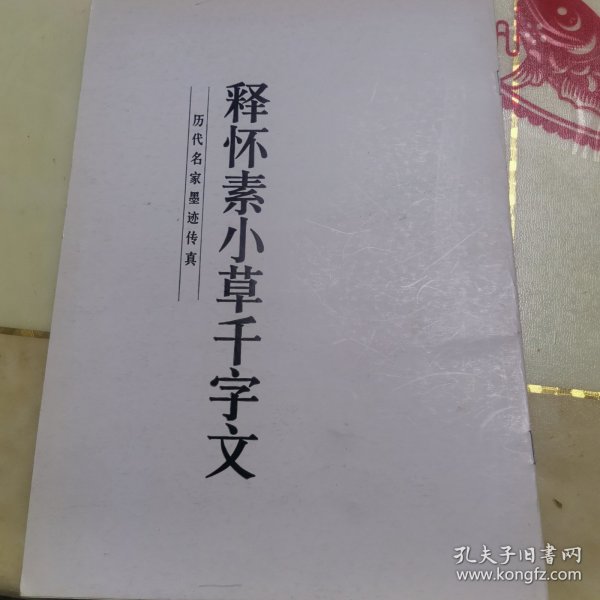 释怀素小草千字文
历代名家墨迹传真
孔夫子旧书网
www.kongfz.com